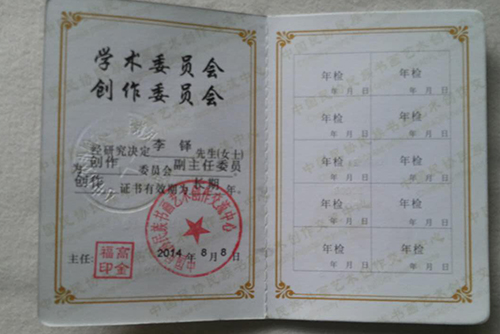 学术委员会
创作委员会
经研究决定 李铎 先生(女士)
为 创作 委员会 副主任委员
创作 证书有效期为 长期 年。
民族书画艺术创作交流中心
主任：
高金福印
2014年8月8日
年检 年检
年 月 日 年 月 日
年检 年检
年 月 日 年 月 日
年检 年检
年 月 日 年 月 日
年检 年检
年 月 日 年 月 日
年检 年检
年 月 日 年 月 日